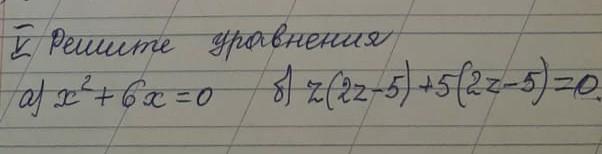 V Решите уравнения
а) x² + 6x = 0 б) z(2z-5)+5(2z-5)=0.